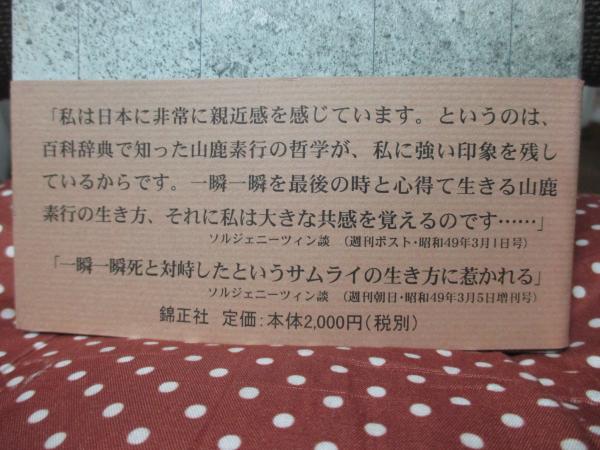 「私は日本に非常に親近感を感じています。というのは、
百科辞典で知った山鹿素行の哲学が、私に強い印象を残し
ているからです。一瞬一瞬を最後の時と心得て生きる山鹿
素行の生き方、それに私は大きな共感を覚えるのです……」
ソルジェニーツィン談 (週刊ポスト・昭和49年3月1日号)
「一瞬一瞬死と対峙したというサムライの生き方に惹かれる」
ソルジェニーツィン談 (週刊朝日・昭和49年3月5日増刊号)
錦正社 定価:本体2,000円(税別)